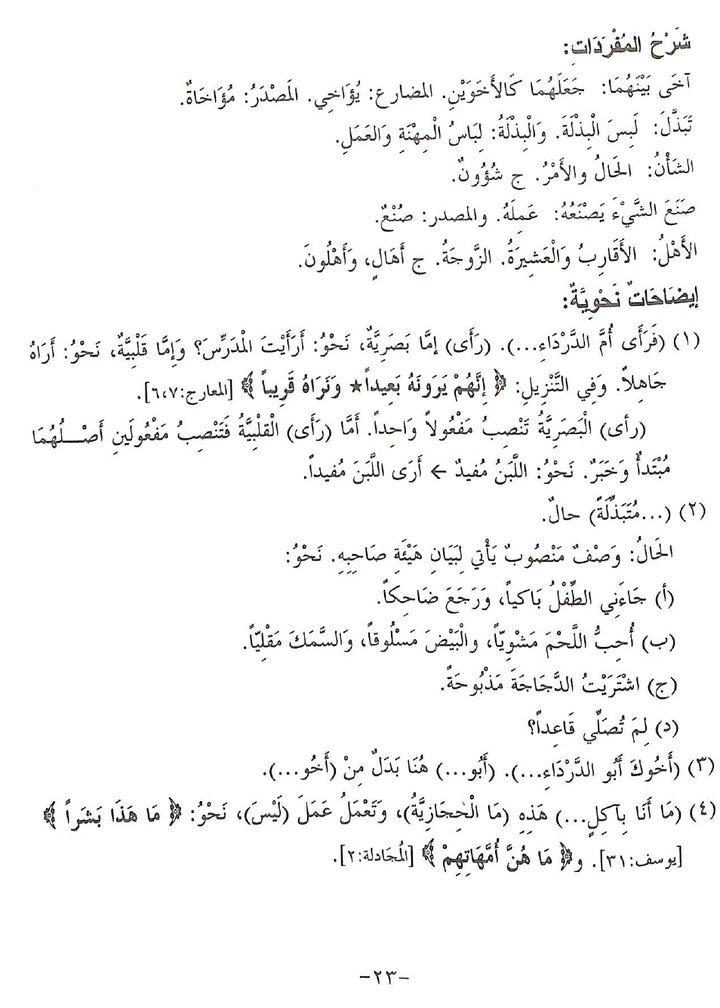 شَرْحُ المُفْرَدَات:
آخَى بَيْنَهُمَا: جَعَلَهُمَا كَالأَخَوَيْنِ. المضارع: يُؤَاخِي. المَصْدَرُ: مُؤَاخَاةٌ.
تَبَذَّلَ: لَبِسَ الْبِذْلَةَ. وَالْبِذْلَةُ: لِبَاسُ الْمِهْنَةِ وَالعَمَلِ.
الشَّأْنُ: الحَالُ والأَمْرُ. ج شُؤُونٌ.
صَنَعَ الشَّيْءَ يَصْنَعُهُ: عَمِلَهُ. والمصدر: صُنْعٌ.
الأَهْلُ: الأَقَارِبُ وَالْعَشِيرَةُ. الزَّوجَةُ. ج أَهَالٍ، وَأَهْلُونَ.
إيضَاحَاتٌ نَحْوِيَّةٌ:
(١) (فَرَأَى أُمَّ الدَّرْدَاءِ...). (رَأَى) إمَّا بَصَرِيَّةٌ، نَحْوُ: أَرَأَيْتَ المُدَرِّسَ؟ وَإِمَّا قَلْبِيَّةٌ، نَحْوُ: أَرَاهُ
جَاهِلاً. وَفِي التَّنْزِيلِ: ﴿ إِنَّهُمْ يَرَوْنَهُ بَعِيداً★ وَنَرَاهُ قَرِيباً ﴾ [المعارج:٦،٧].
(رأى) الْبَصَرِيَّةُ تَنْصِبُ مَفْعُولاً وَاحِداً. أَمَّا (رَأَى) القَلْبِيَّةُ فَتَنْصِبُ مَفْعُولَينِ أَصْـــلُهُمَا
مُبْتَدأٌ وَخَبَرٌ. نَحْوُ: اللَّبَنُ مُفيدٌ ← أَرَى اللَّبَنَ مُفيداً.
(٢) (...مُتَبَذِّلَةً) حالٌ.
الحَالُ: وَصْفٌ مَنْصُوبٌ يَأْتي لِبَيَانِ هَيْئَةِ صَاحِبِهِ. نَحْوُ:
(أ) جَاءَنِي الطِّفْلُ بَاكياً، وَرَجَعَ ضَاحِكاً.
(ب) أُحِبُّ اللَّحْمَ مَشْوِيّاً، والْبَيْضَ مَسْلُوقاً، وَالسَّمَكَ مَقْلِيّاً.
(ج) اشْتَرَيْتُ الدَّجَاجَةَ مَذْبُوحَةً.
(د) لِمَ تُصَلِّي قَاعِداً؟
(٣) (أَخُوكَ أَبُو الدَّرْدَاءِ...). (أَبُو...) هُنَا بَدَلٌ مِنْ (أَخُو...).
(٤) (مَا أَنَا بِآكِلٍ...) هَذِهِ (مَا الْحِجَازِيَّةُ)، وَتَعْمَلُ عَمَلَ (لَيْسَ)، نَحْوُ: ﴿ مَا هَذَا بَشَراً ﴾
[يوسف:٣١]. و﴿ مَا هُنَّ أُمَّهَاتِهِمْ ﴾ [المُجَادلة:٢].
-٢٣-